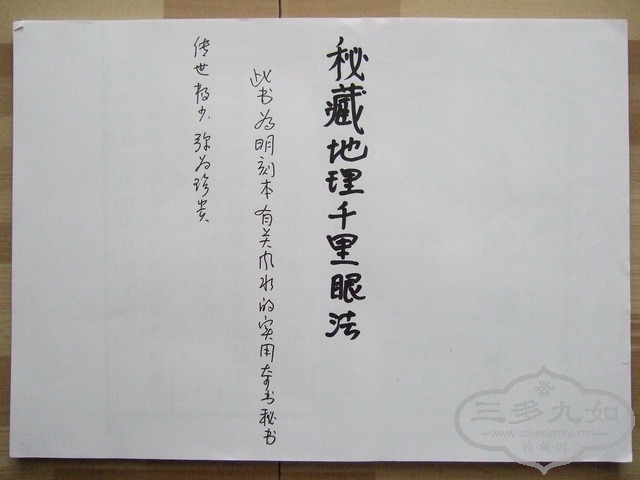 秘藏地理千里眼法
此书为明刻本有关风水的实用奇书秘书
传世极少.弥为珍贵
三多九如
www.silver-china.net
收·藏·网